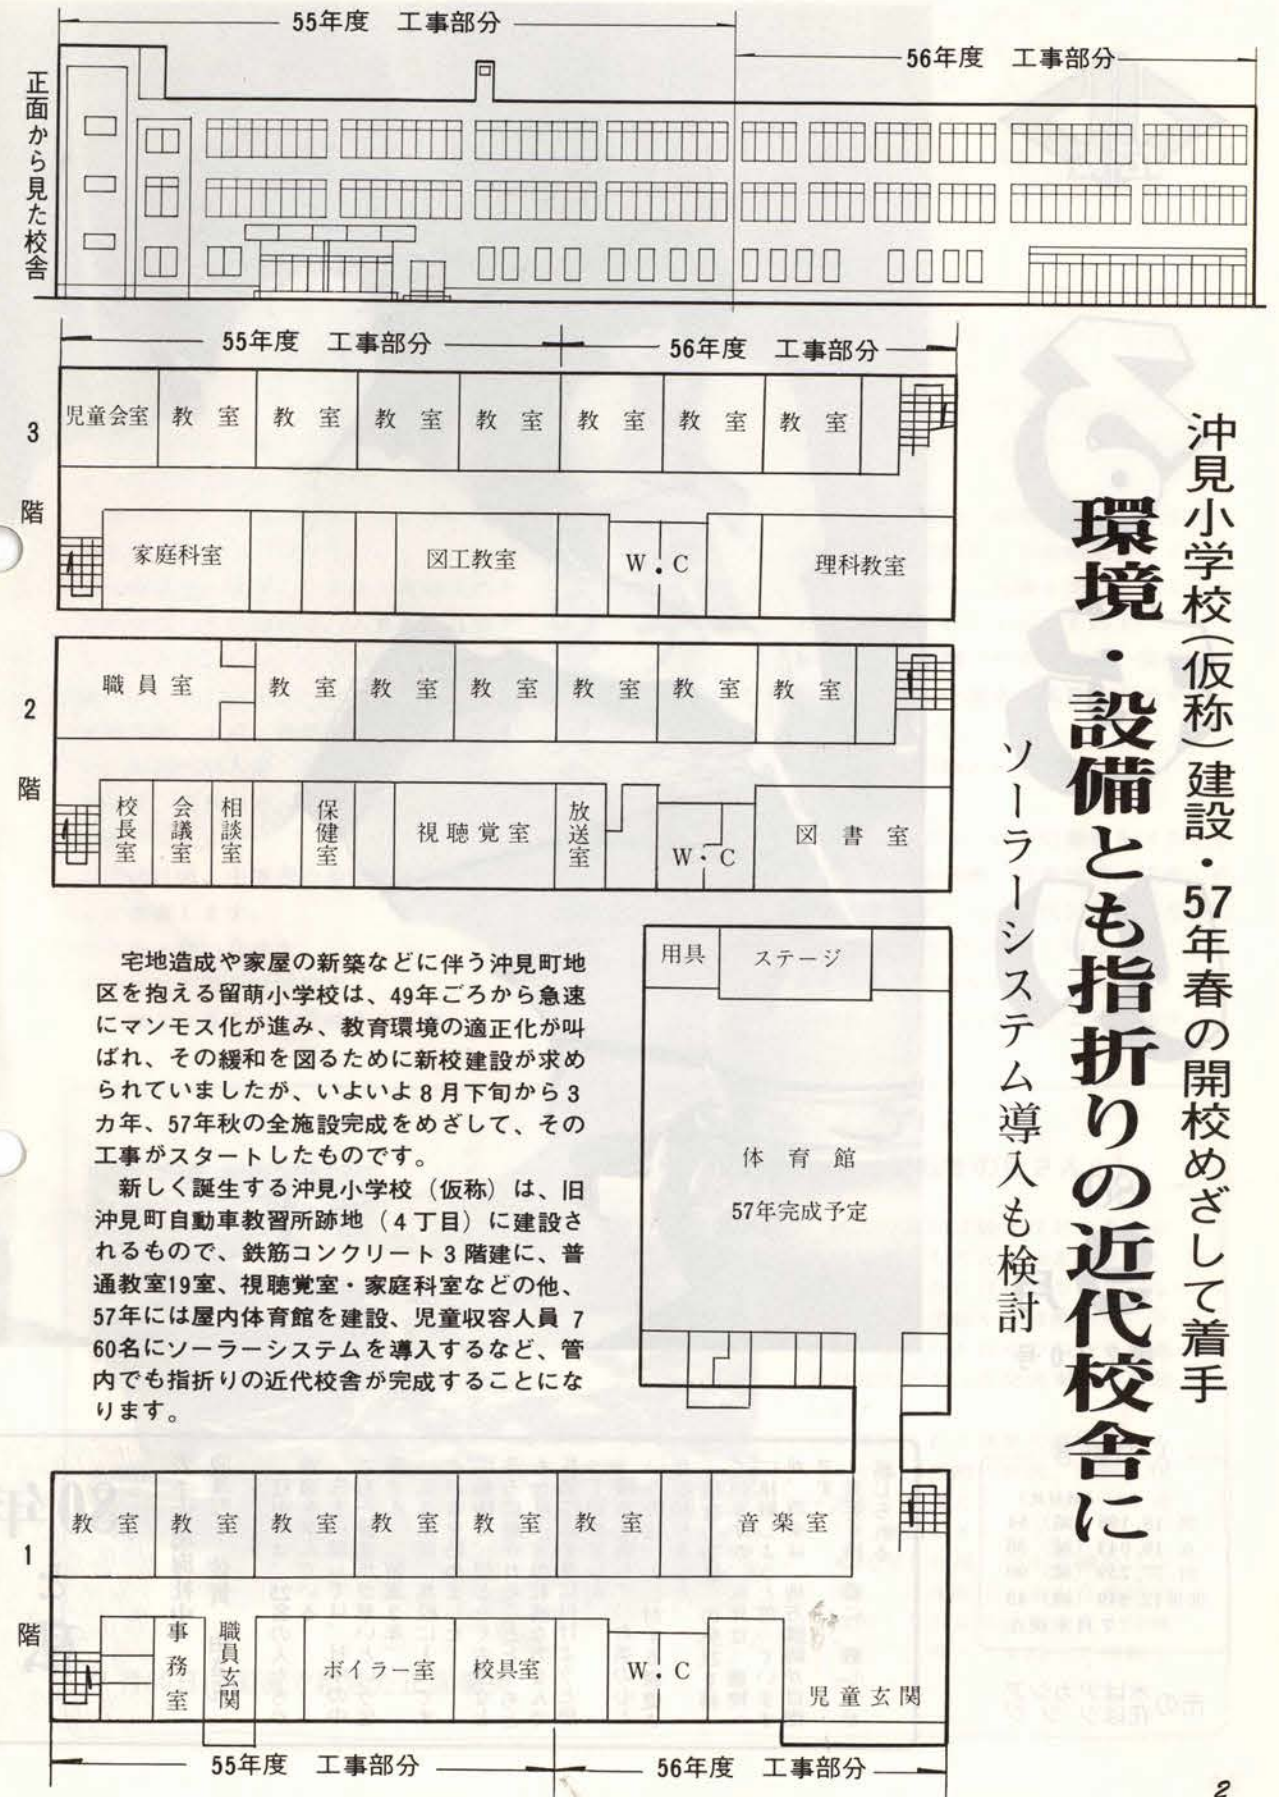 沖見小学校(仮称)建設・57年春の開校めざして着手
環境・設備とも指折りの近代校舎に
ソーラーシステム導入も検討
55年度 工事部分
56年度 工事部分
正面から見た校舎
55年度 工事部分
56年度 工事部分
3階
児童会室 教室 教室 教室 教室 教室 教室 教室
家庭科室 図工教室 W・C 理科教室
2階
職員室 教室 教室 教室 教室 教室 教室
校長室 会議室 相談室 保健室 視聴覚室 放送室 W・C 図書室
宅地造成や家屋の新築などに伴う沖見町地
区を抱える留萌小学校は、49年ごろから急速
にマンモス化が進み、教育環境の適正化が叫
ばれ、その緩和を図るために新校建設が求め
られていましたが、いよいよ8月下旬から3
カ年、57年秋の全施設完成をめざして、その
工事がスタートしたものです。
新しく誕生する沖見小学校(仮称)は、旧
沖見町自動車教習所跡地(4丁目)に建設さ
れるもので、鉄筋コンクリート3階建に、普
通教室19室、視聴覚室・家庭科室などの他、
57年には屋内体育館を建設、児童収容人員 7
60名にソーラーシステムを導入するなど、管
内でも指折りの近代校舎が完成することにな
ります。
用具 ステージ
体育館
57年完成予定
1階
教室 教室 教室 教室 教室 教室 音楽室
事務室 職員玄関 ボイラー室 校具室 W・C 児童玄関
55年度 工事部分
56年度 工事部分
2